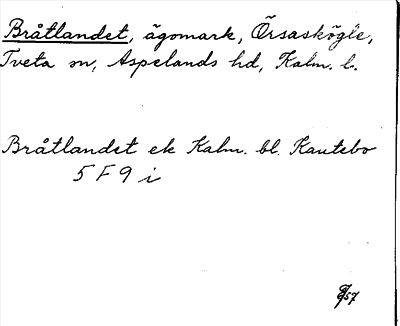 Bråtlandet, ägomark, Örsaskögle,
Tveta sn, Aspelands hd, Kalm. l.
Bråtlandet ek Kalm. bl. Kautebo
5 F 9 i
57